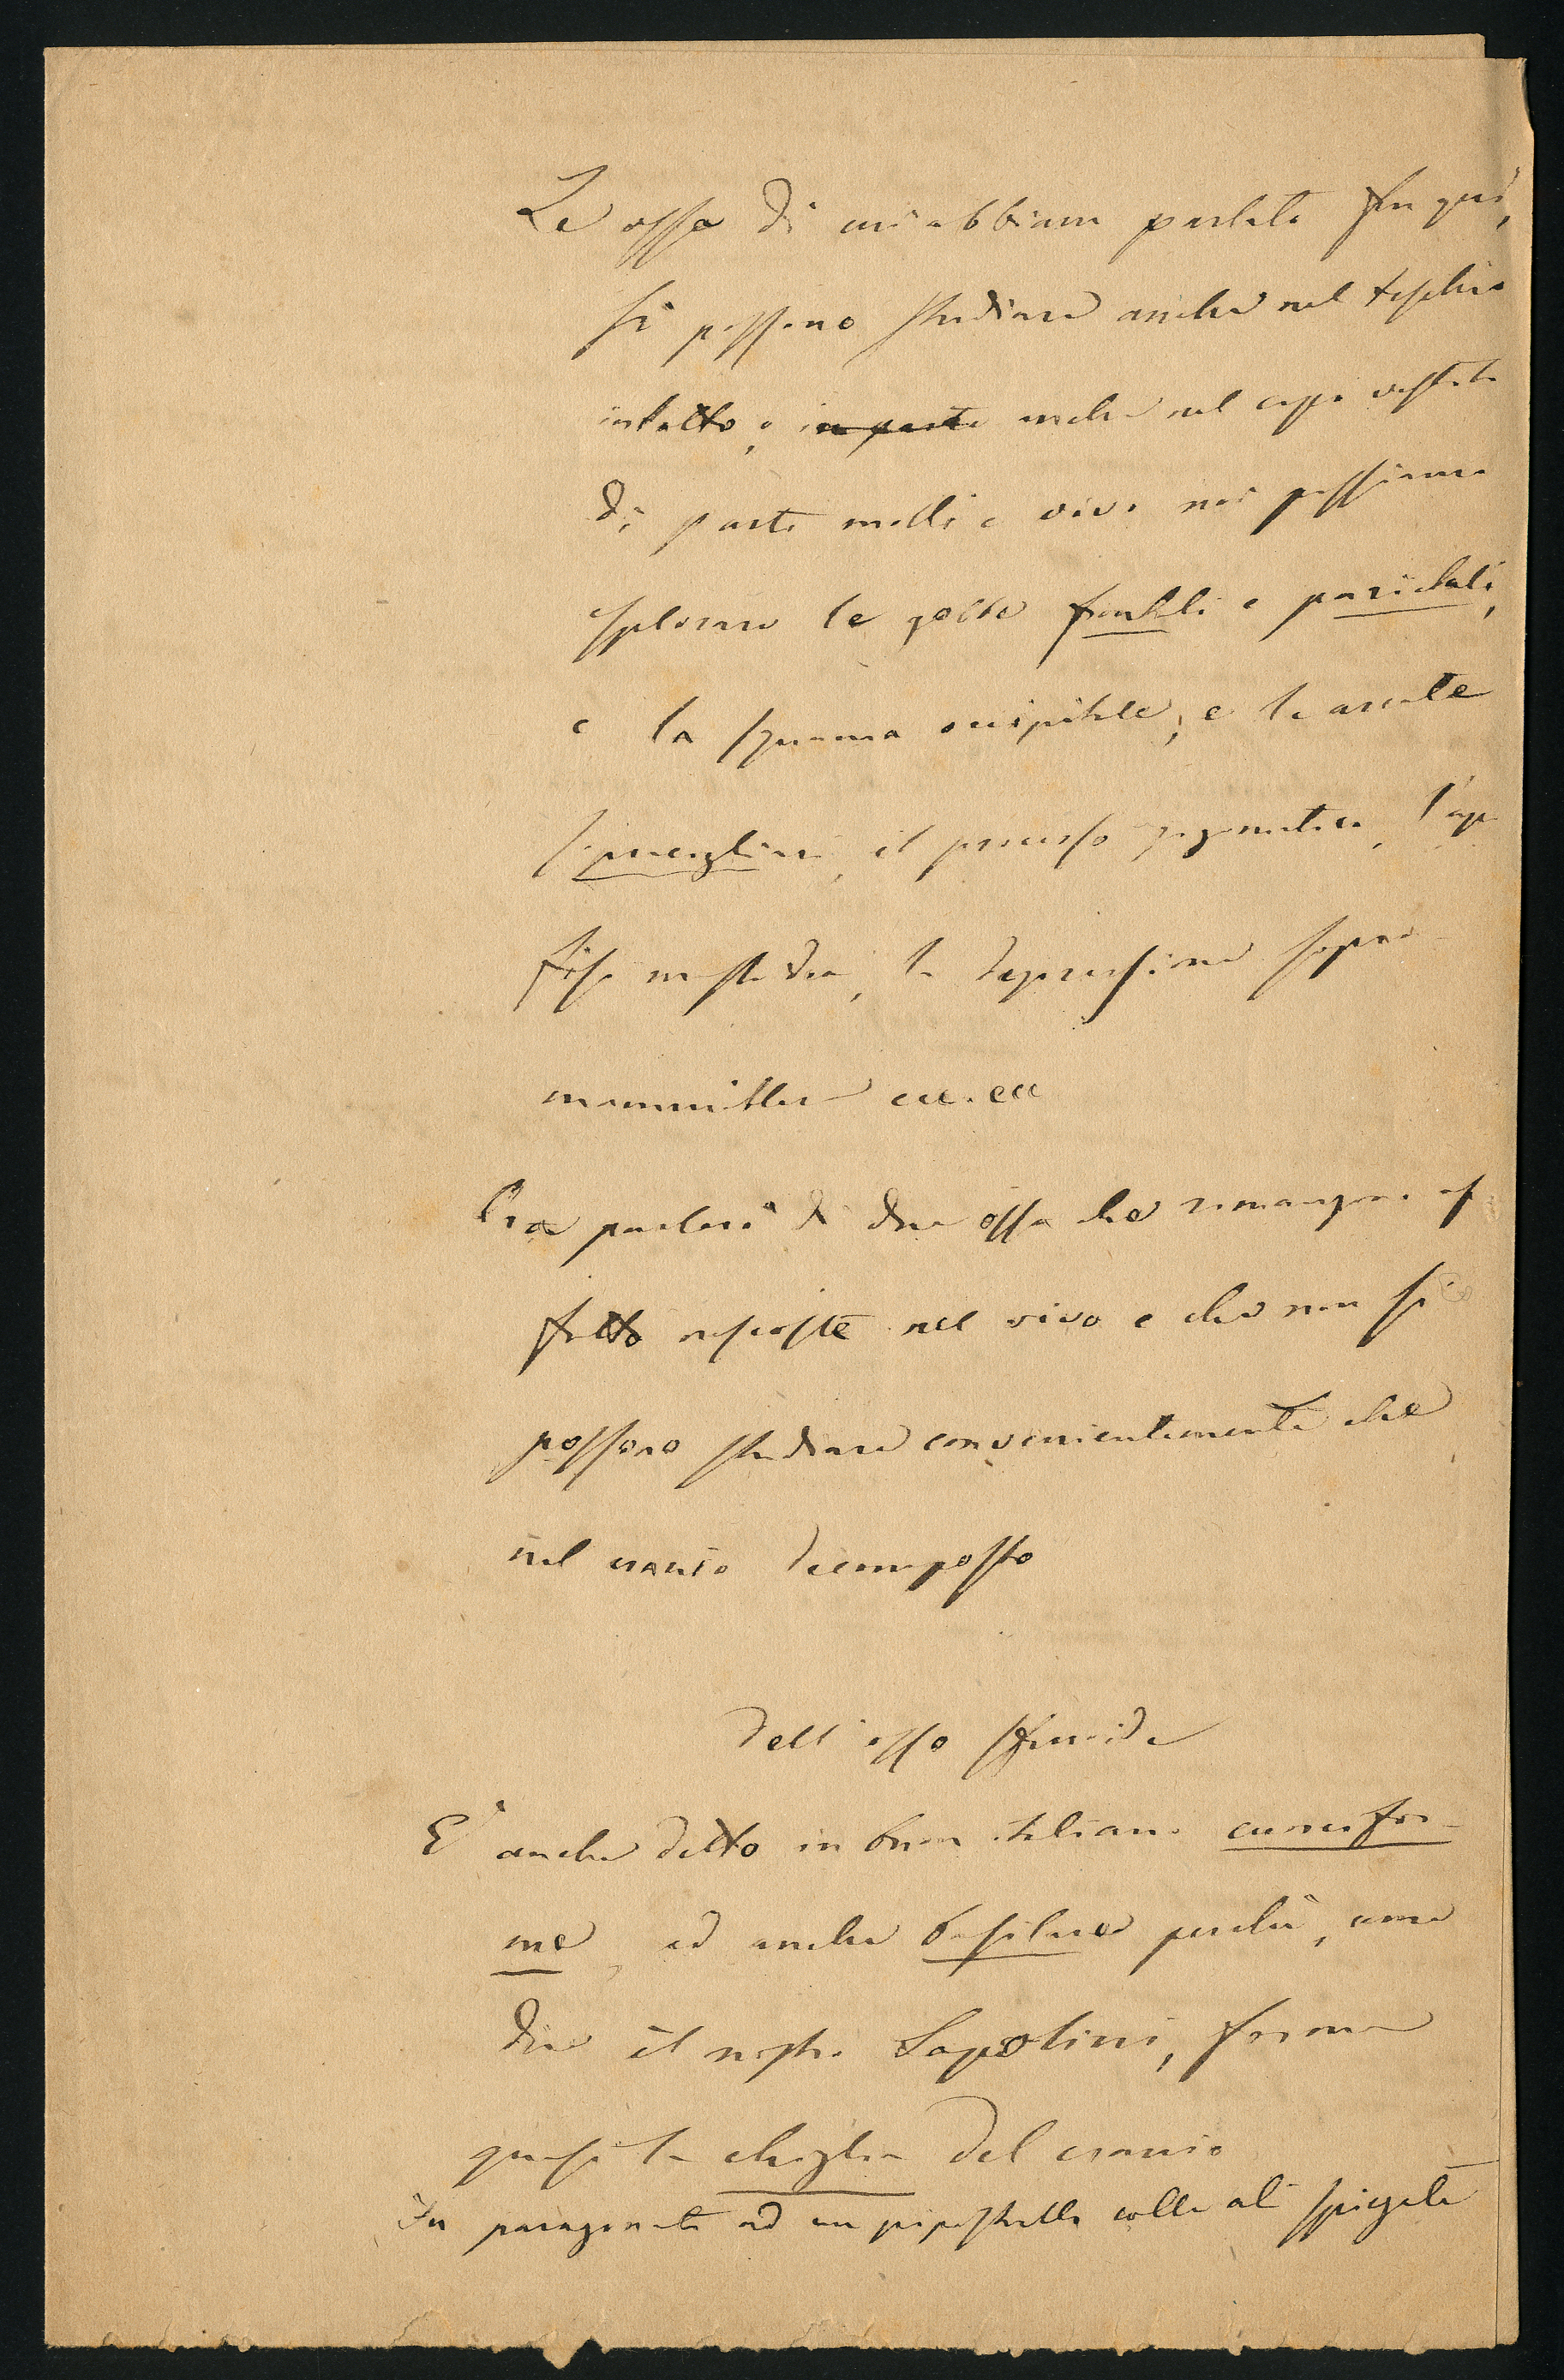 Le ossa di cui abbiam parlato fin quì,
si possono studiare anche nel teschio
intatto, e in parte anche nel capo vestito
di parti molli e vivo noi possiamo
esplorare le gobbe frontali e parietali,
e la squama occipitale, e le arcate
sopraccigliari, il processo zigomatico, l'apo
fisi mastoidea, la depressione sopra-
mammillare ecc. ecc
Ora parlerò di due ossa che rimangono af
fatto nascoste nel vivo e che non si
possono studiare convenientemente che
nel cranio decomposto
Dell'osso sfenoide
E' anche detto in buon italiano cuneifor-
me, ed anche basilare perchè, come
dice il nostro Sapolini, forma
quasi la chiglia del cranio
Fu paragonato ad un pipistrello colle ali spiegate